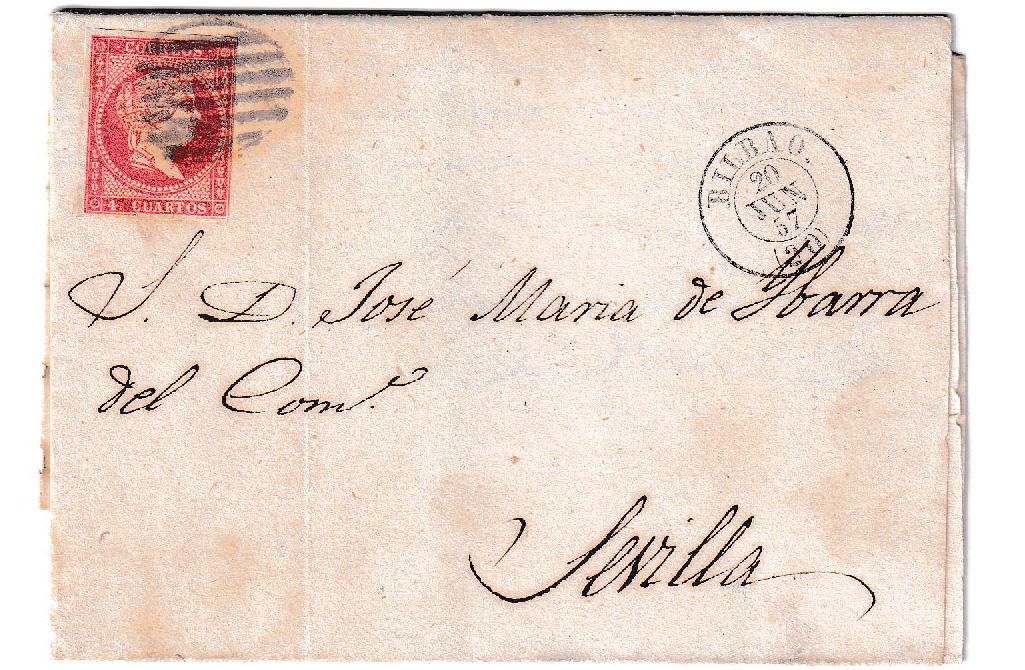 CORREOS
4 CUARTOS
BILBAO.
20
JUN
57
(21)
S. D. José Maria de Ybarra
del Com.º
Sevilla